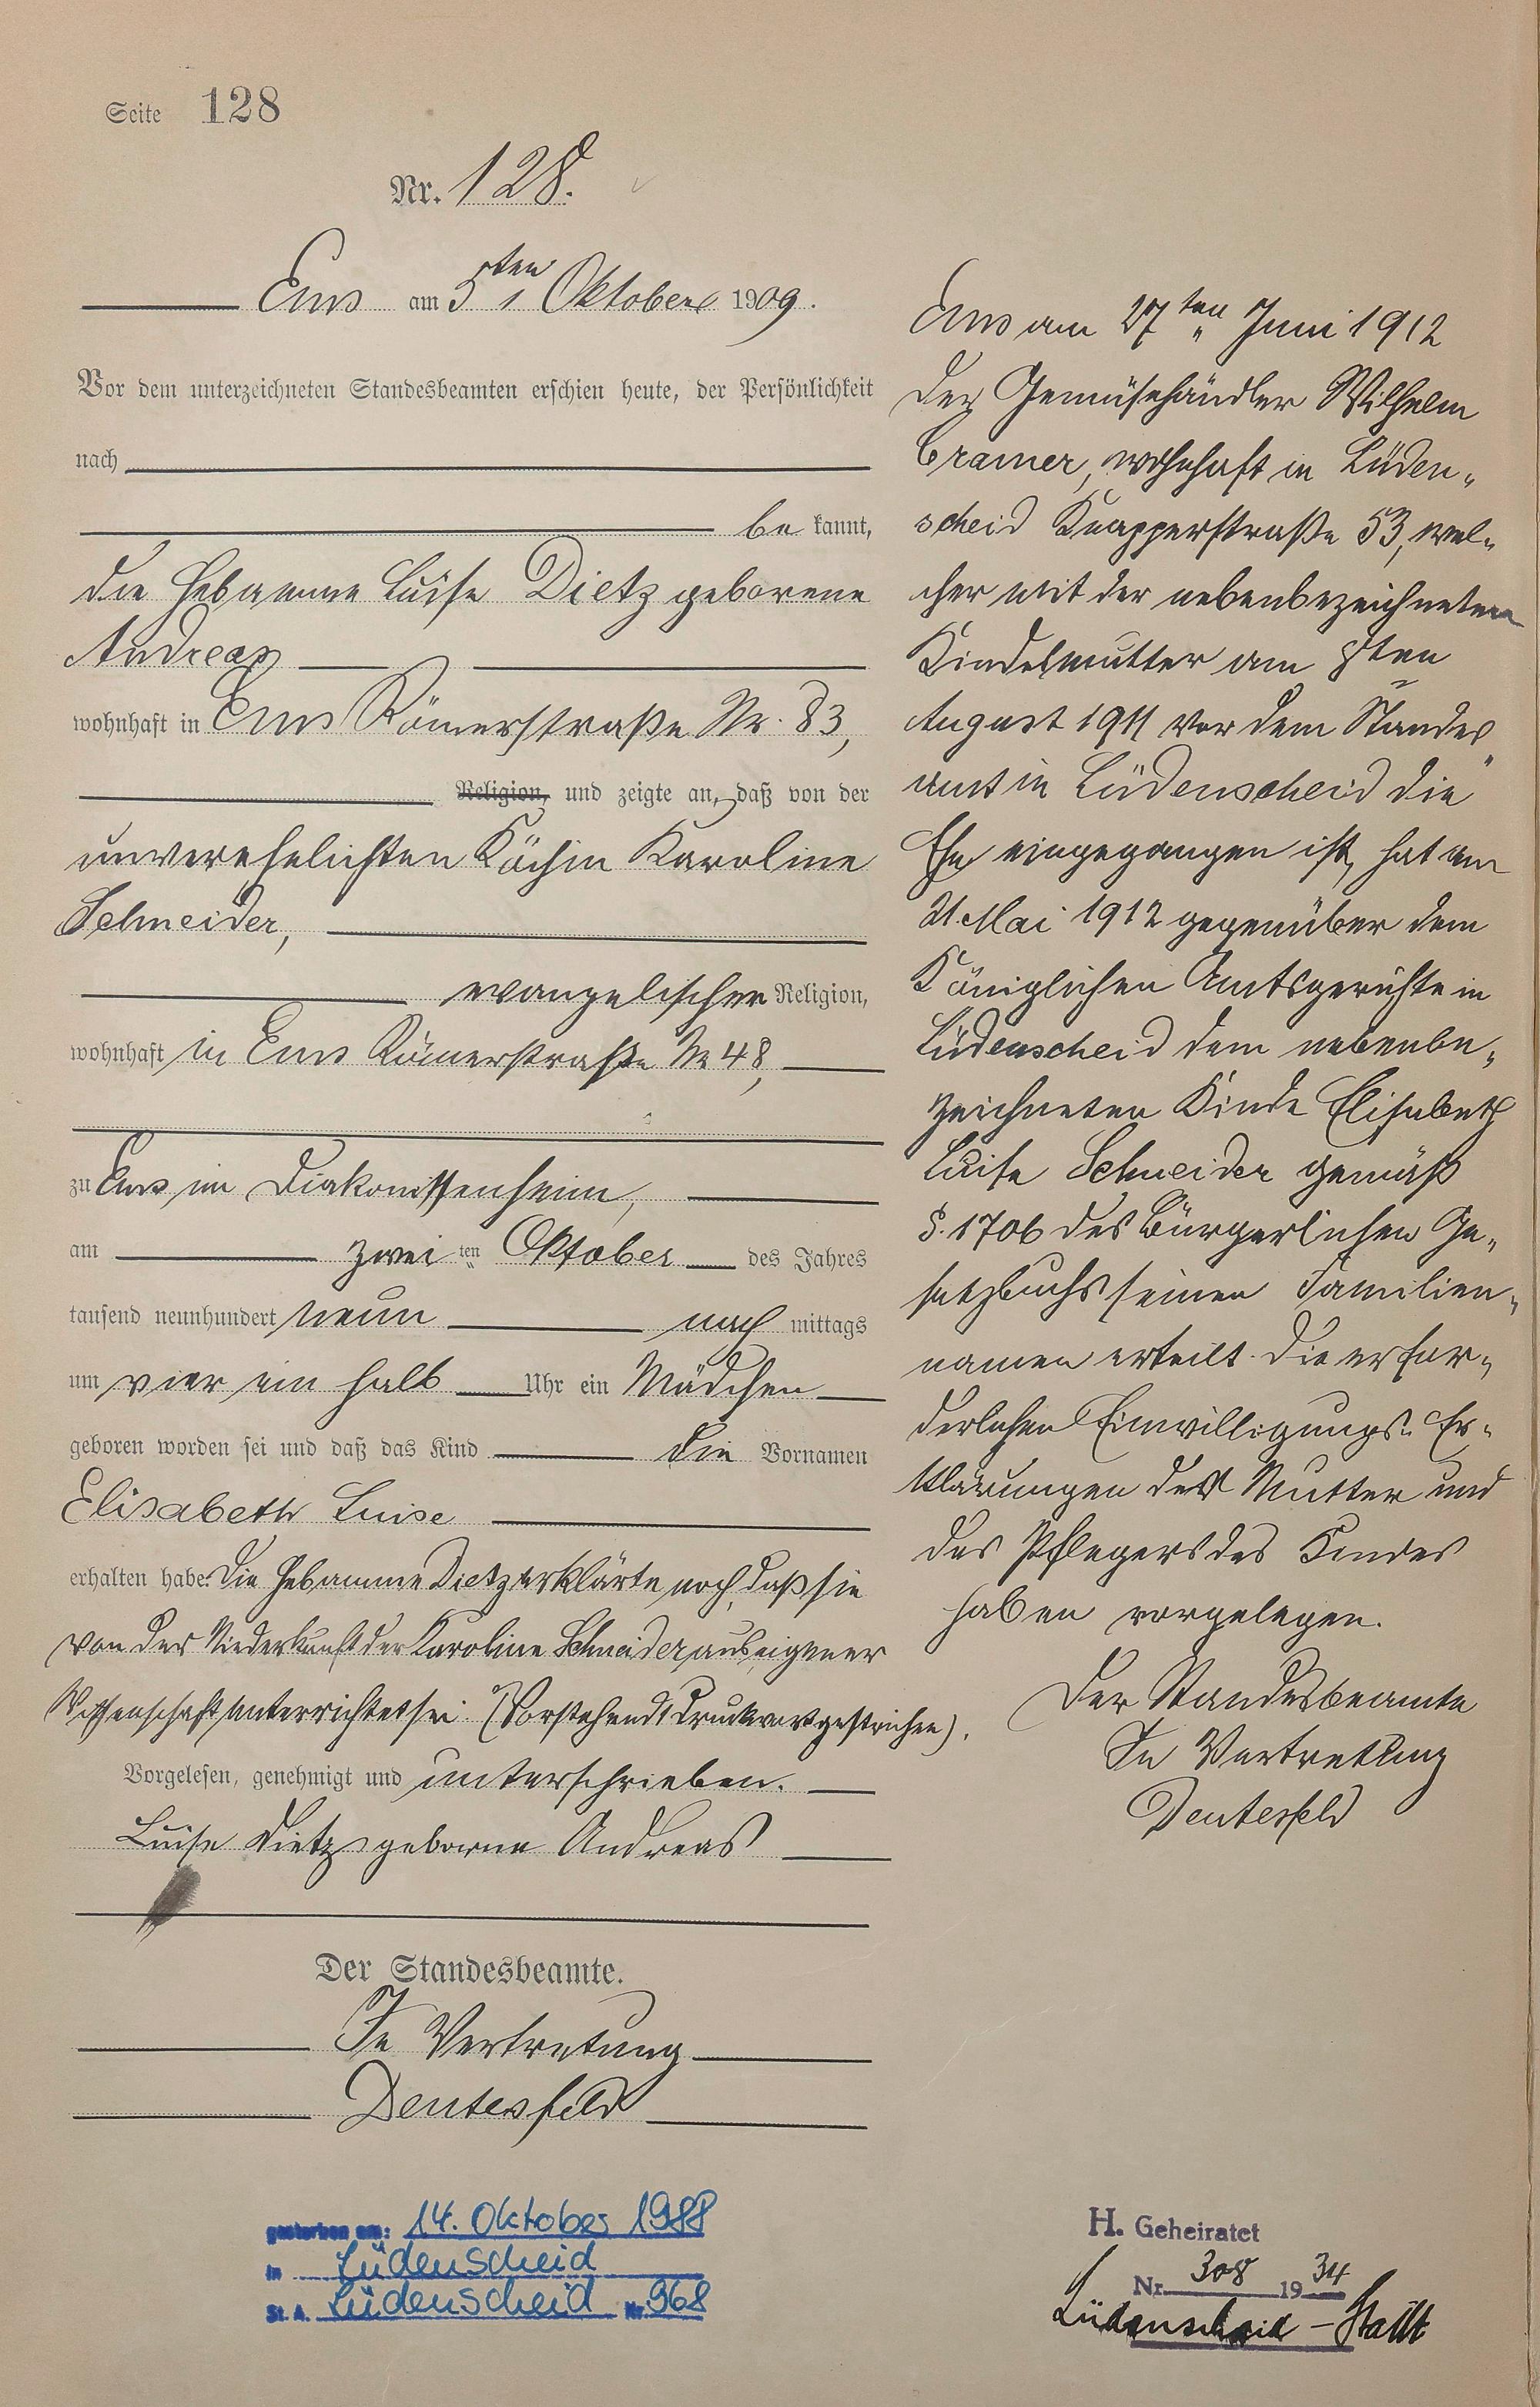 Seite 128
Nr. 128.
Ems am 5ten Oktober 1909.
Vor dem unterzeichneten Standesbeamten erschien heute, der Persönlichkeit
nach
be kannt,
die Hebamme Luise Dietz geborene
Andreas
wohnhaft in Ems Römerstraße Nr. 83,
Religion, und zeigte an, daß von der
unverehelichten Köchin Karoline
Schneider,
evangelischer Religion,
wohnhaft in Ems Römerstraße Nr 48,
zu Ems im Diakonissenheim,
am zwei ten Oktober des Jahres
tausend neunhundert neun nach mittags
um vier ein halb Uhr ein Mädchen
geboren worden sei und daß das Kind die Vornamen
Elisabeth Luise
erhalten habe. Die Hebamme Dietz erklärte noch, daß sie
von der Niederkunft der Karoline Schneider aus eigener
Wissenschaft unterrichtet sei. (Vorstehend 1 Druckwort gestrichen).
Vorgelesen, genehmigt und unterschrieben.
Luise Dietz geborne Andreas
Der Standesbeamte.
In Vertretung
Dentesfeld
gestorben am: 14. Oktober 1988
in Lüdenscheid
St. A. Lüdenscheid Nr. 968
Ems am 27ten Juni 1912
Der Gemüsehändler Wilhelm
Cramer, wohnhaft in Lüden-
scheid Knapperstraße 53, wel-
cher mit der nebenbezeichneten
Kindesmutter am 8ten
August 1911 vor dem Standes-
amt in Lüdenscheid die
Ehe eingegangen ist, hat am
21. Mai 1912 gegenüber dem
Königlichen Amtsgerichte in
Lüdenscheid dem nebenbe-
zeichneten Kinde Elisabeth
Luise Schneider gemäß
§. 1706 des Bürgerlichen Ge-
setzbuchs seinen Familien-
namen erteilt. Die erfor-
derlichen Einwilligungs-Er-
klärungen der Mutter und
des Pflegers des Kindes
haben vorgelegen.
Der Standesbeamte
In Vertretung
Dentesfeld
H. Geheiratet
Nr. 308 1934
Lüdenscheid-Stadt